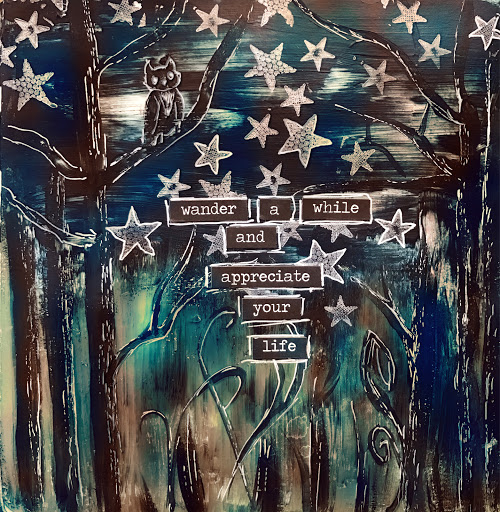 wander a while
and
appreciate
your
life